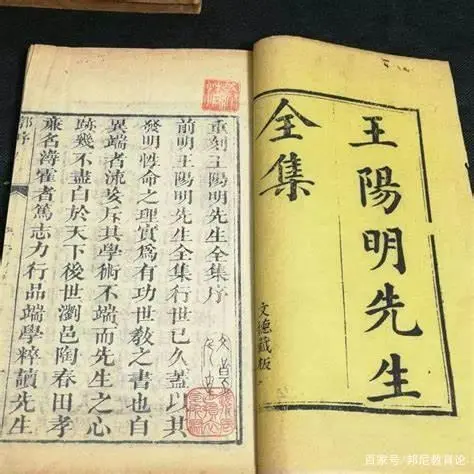 王陽明先生
全集
文德藏板
重刻王陽明先生全集序
前明王陽明先生全集行世已久蓋以其
發明性命之理實爲有功世教之書也自
異端者流妄斥其學術不端而先生之心
跡幾不盡白於天下後世瀏邑陶春田孝
亷名潯霍者篤志力行品端學粹讀先生
百家号/邦尼教育论